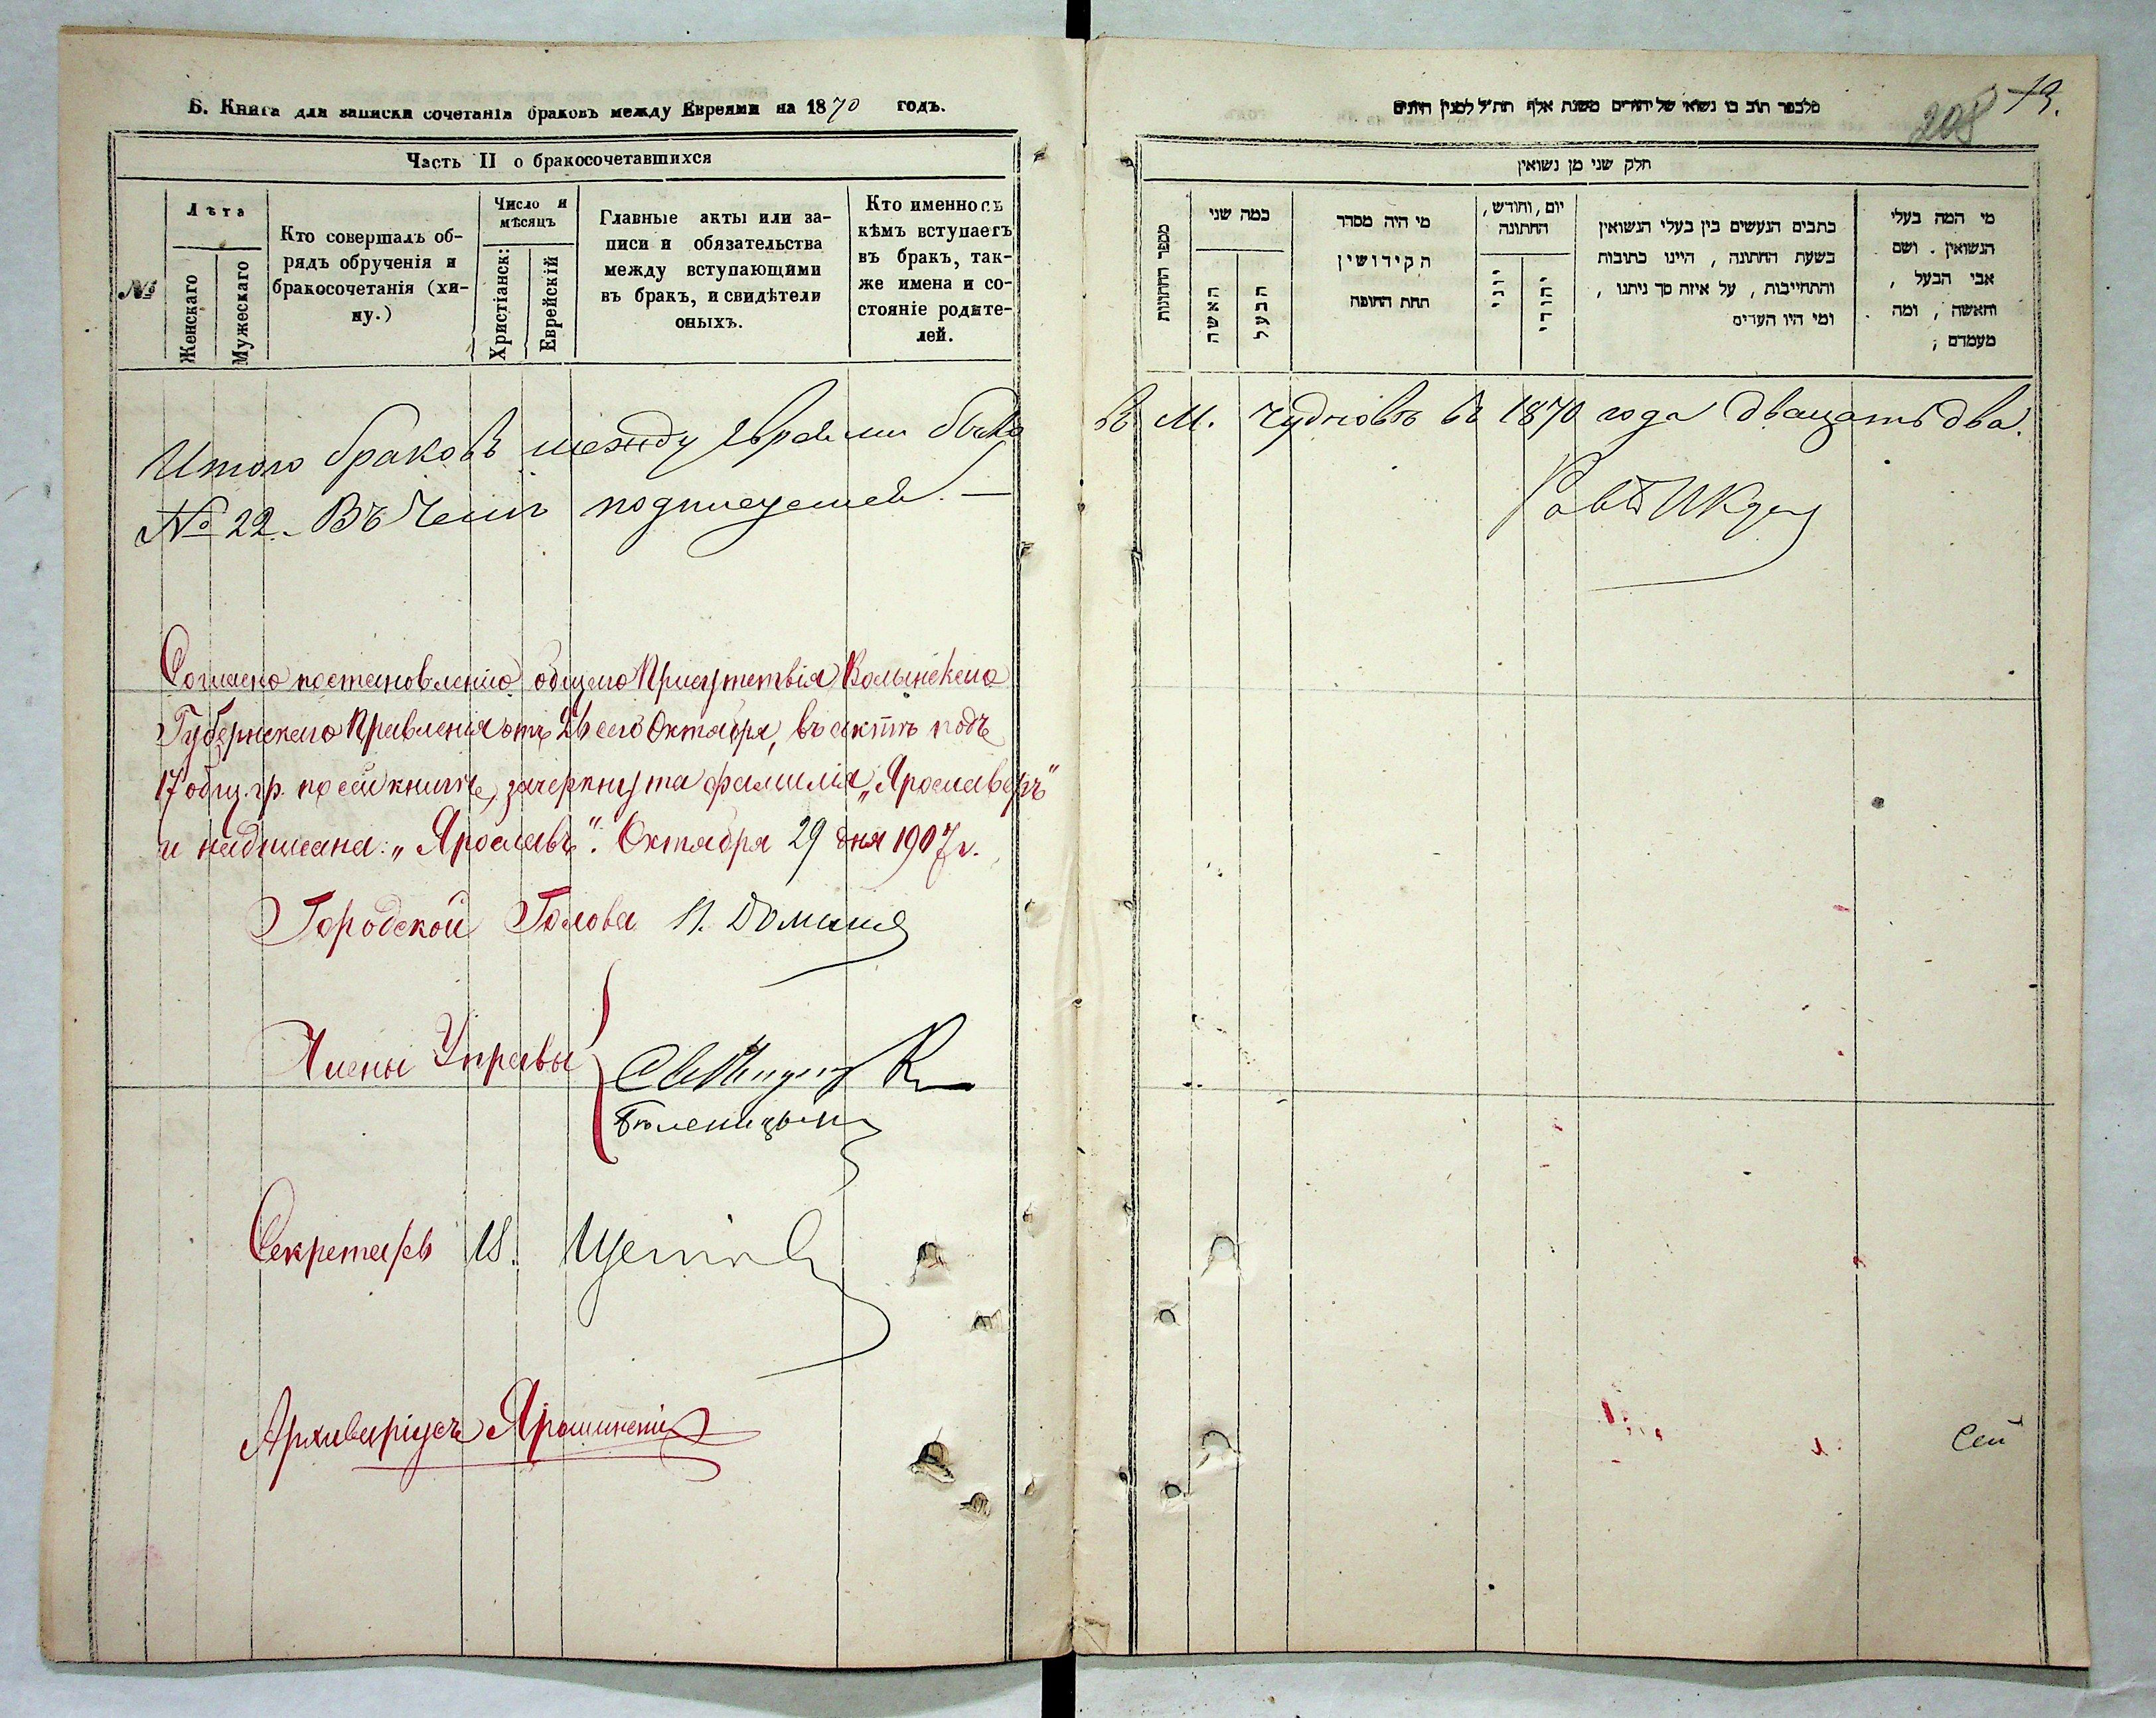 Б. Книга для записки сочетанія браковъ между Евреями на 1870 годъ.
Часть II о бракосочетавшихся
№
Лѣта
Женскаго
Мужескаго
Кто совершалъ об-
рядъ обрученія и
бракосочетанія (хи-
пу.)
Число и
мѣсяцъ
Христіанскі:
Еврейскій
Главные акты или за-
писи и обязательства
между вступающими
въ бракъ, и свидѣтели
оныхъ.
Кто именно съ
кѣмъ вступаетъ
въ бракъ, так-
же имена и со-
стояніе родите-
лей.
Итого браковъ между Евреями было
№ 22. Въ чемъ подписуемся. —
Согласно постановленію общаго Присутствія Волынскаго
Губернскаго Правленія отъ 26 сего Октября, въ актѣ подъ
17 общ. гр. по сей книгѣ, зачеркнута фамилія „Ярославеръ"
и надписана: „Ярославъ". Октября 29 дня 1907 г.
Городской Голова
Члены Управы
Секретарь
Архиваріусъ Ярошинскій
208 19.
חלק שני מן נשואין
מספר החתונות
כמה שני
האשה
הבעל
מי היה מסדר
הקידושין
תחת החופה
יום, וחודש,
החתונה
יוני
יהודי
כתבים הנעשים בין בעלי הנשואין
בשעת החתונה , היינו כתובות
והתחייבות , על איזה סך ניתנו ,
ומי היו העדים
מי המה בעלי
הנשואין . ושם
אבי הבעל ,
והאשה , ומה
מעמדם ;
въ М. Чудновѣ въ 1870 года двацать два.
Сей